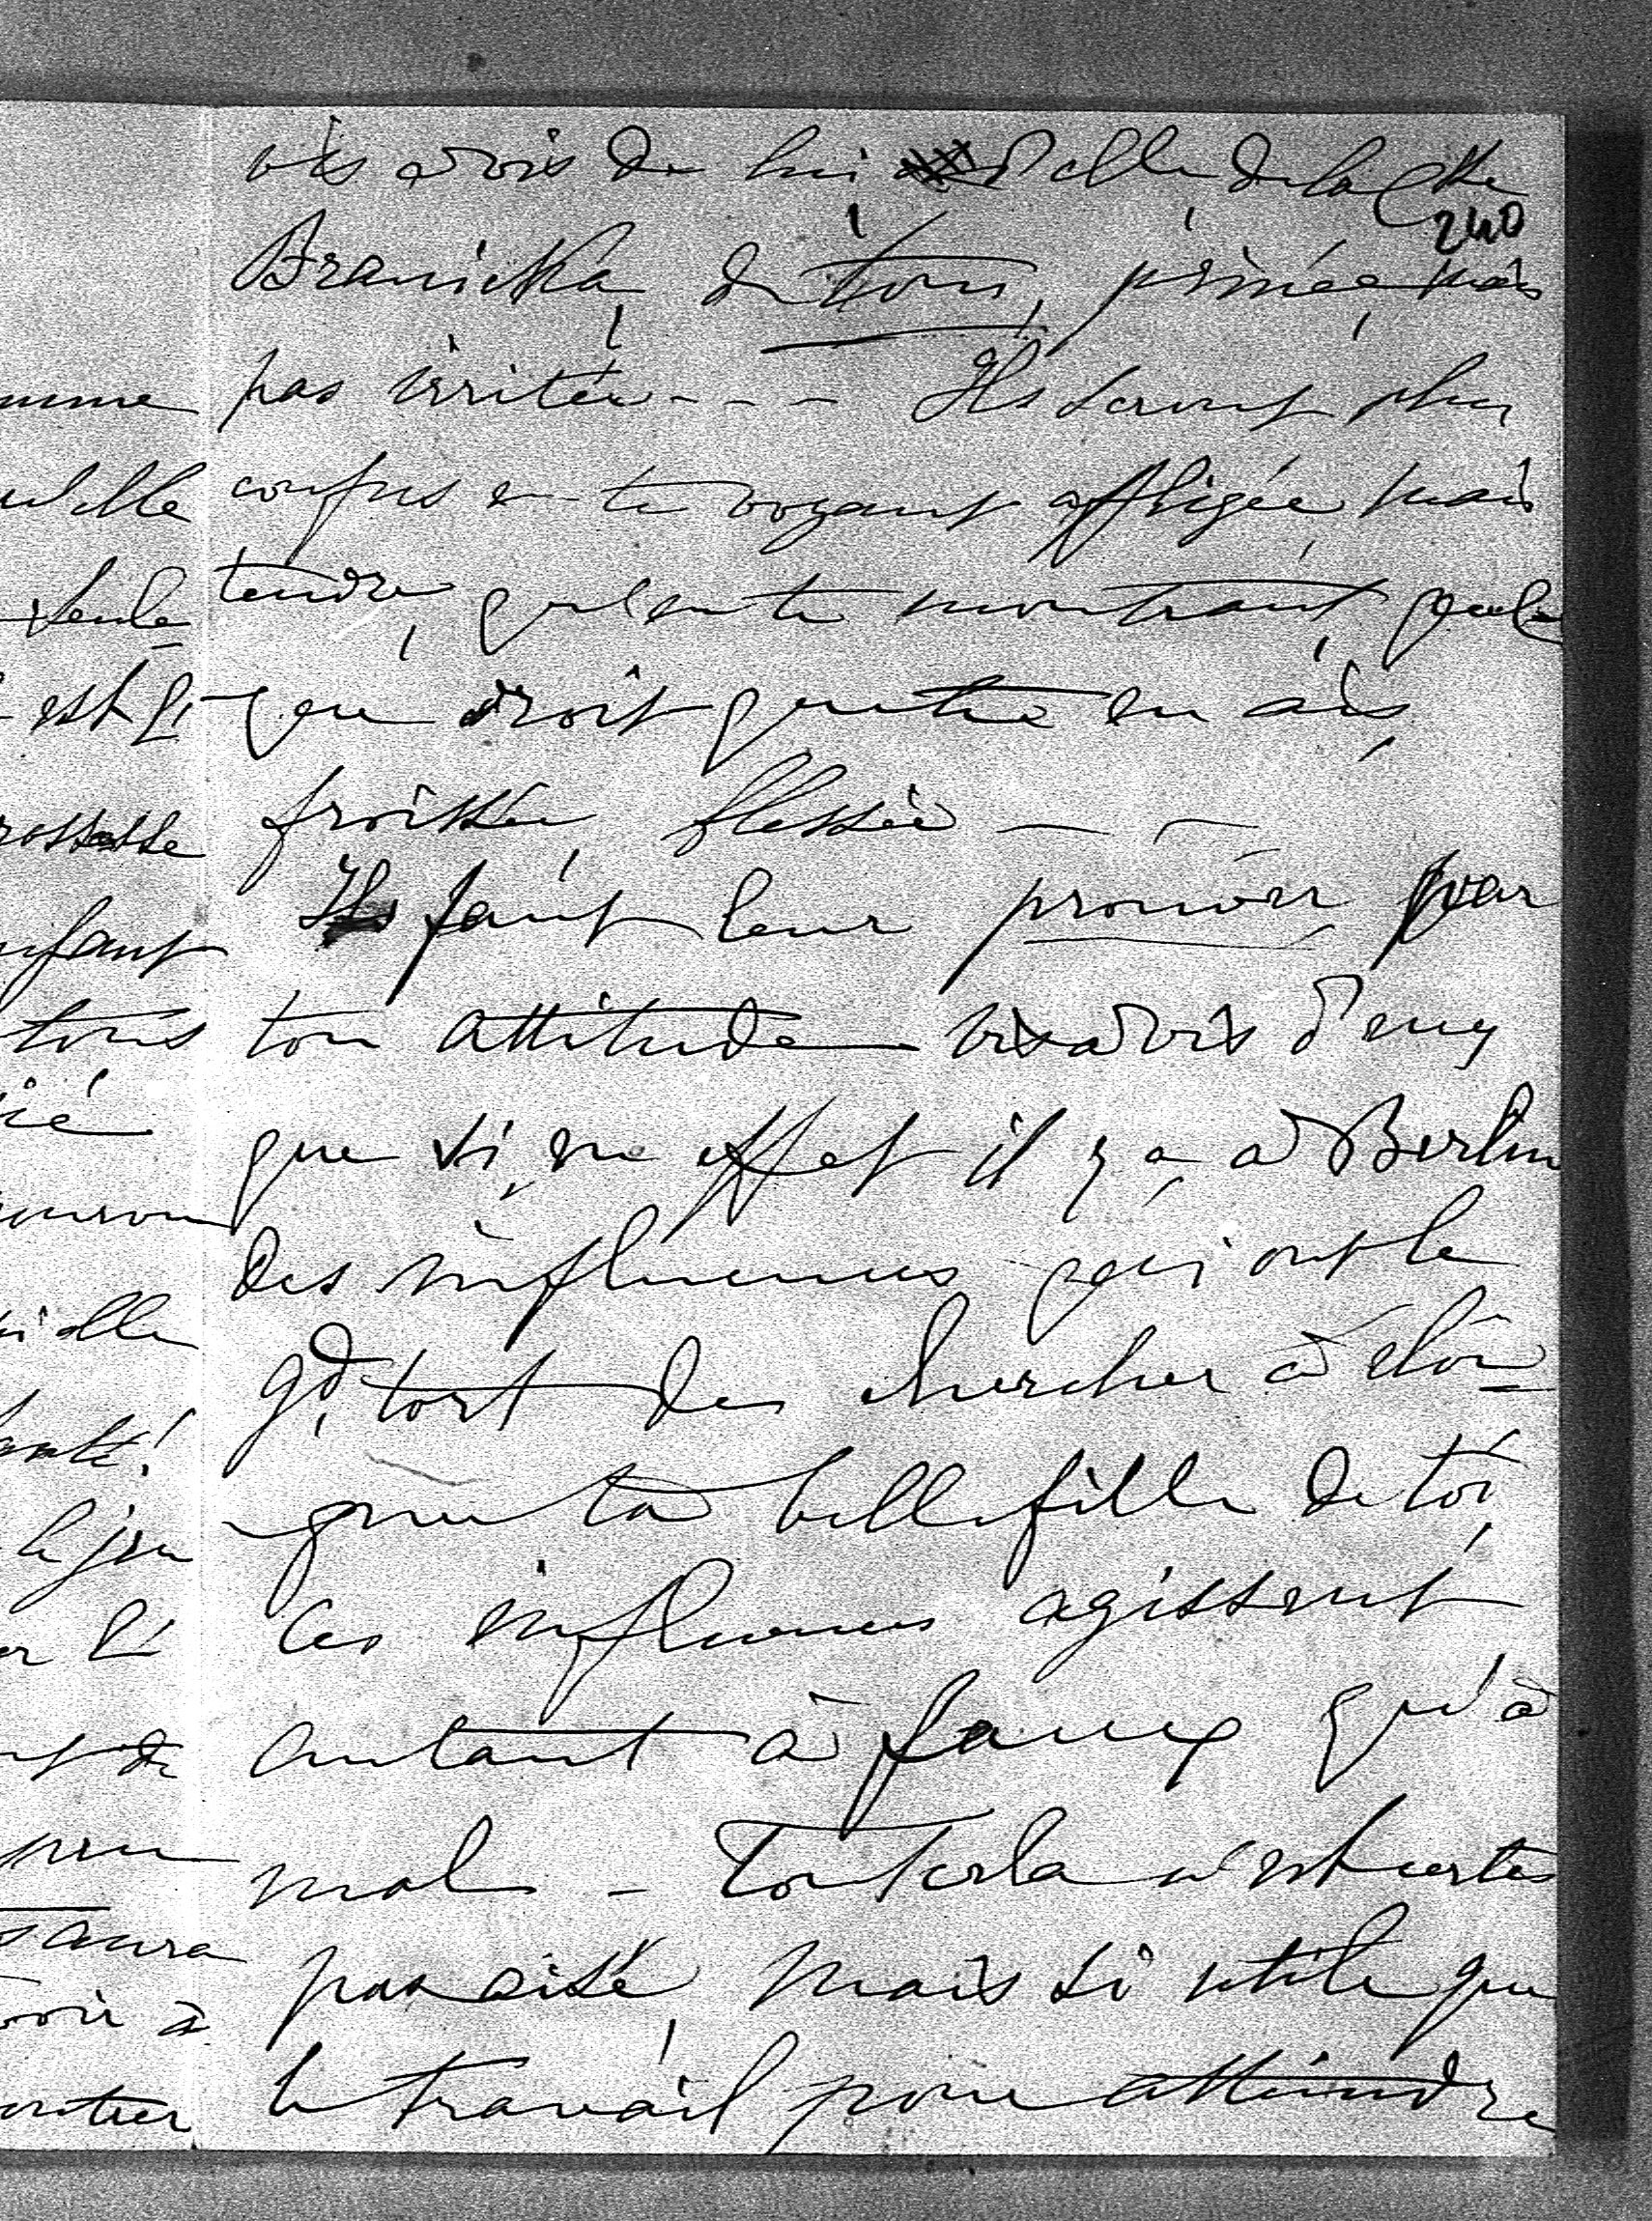 vis à vis de lui d'elle, de la Ctsse
240
Branicka, de tous, peinée mais
pas irritée - - - Ils seront plus
confus en te voyant affligée, mais
tendre, qu'en te montrant, quel-
que droit que tu en aies,
froissée, blessée - -
Il faut leur prouver par
ton attitude vis à vis d'eux
que si, en effet il y a, à Berlin
des influences qui ont le
gd, tort de chercher à éloi-
gner ta belle fille de toi,
ces influences agissent,
autant à faux qu'à
mal - Tout cela n'est certes
pas aisé, mais si utile que
le travail pour atteindre
mme
elle
seule
est
enfant
tous
elle
santé!
de
aura
voir à